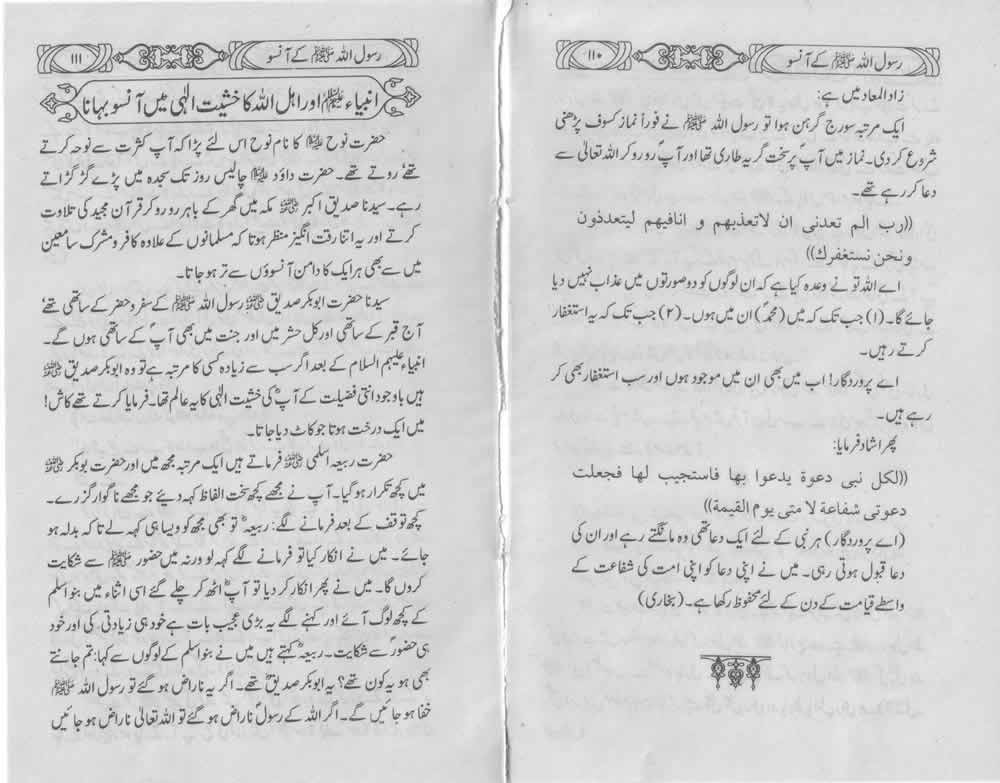 رسول اللہ ﷺ کے آنسو
۱۱۰
زاد المعاد میں ہے:
ایک مرتبہ سورج گرہن ہوا تو رسول اللہ ﷺ نے فوراً نماز کسوف پڑھنی
شروع کر دی۔ نماز میں آپؐ پر سخت گریہ طاری تھا اور آپؐ رو رو کر اللہ تعالیٰ سے
دعا کر رہے تھے۔
((رب الم تعدنى ان لاتعذبهم و انافيهم ليتعذدون
ونحن نستغفرك))
اے اللہ تو نے وعدہ کیا ہے کہ ان لوگوں کو دو صورتوں میں عذاب نہیں دیا
جائے گا۔ (۱) جب تک کہ میں (محمدؐ) ان میں ہوں۔ (۲) جب تک کہ یہ استغفار
کرتے رہیں۔
اے پروردگار! اب میں بھی ان میں موجود ہوں اور سب استغفار بھی کر
رہے ہیں۔
پھر اشاد فرمایا:
((لكل نبى دعوة يدعوا بها فاستجيب لها فجعلت
دعوتى شفاعة لا متى يوم القيمة))
(اے پروردگار) ہر نبی کے لئے ایک دعا تھی وہ مانگتے رہے اور ان کی
دعا قبول ہوتی رہی۔ میں نے اپنی دعا کو اپنی امت کی شفاعت کے
واسطے قیامت کے دن کے لئے محفوظ رکھا ہے۔ (بخاری)
رسول اللہ ﷺ کے آنسو
۱۱۱
انبیاء علیہم السلام اور اہل اللہ کا خشیت الٰہی میں آنسو بہانا
حضرت نوح علیہ السلام کا نام نوح اس لئے پڑا کہ آپ کثرت سے نوحہ کرتے
تھے‘ روتے تھے۔ حضرت داؤد علیہ السلام چالیس روز تک سجدہ میں پڑے گڑگڑاتے
رہے۔ سیدنا صدیق اکبر رضی اللہ عنہ مکہ میں گھر کے باہر رو رو کر قرآن مجید کی تلاوت
کرتے اور یہ اتنا رقت انگیز منظر ہوتا کہ مسلمانوں کے علاوہ کافر و مشرک سامعین
میں سے بھی ہر ایک کا دامن آنسوؤں سے تر ہو جاتا۔
سیدنا حضرت ابوبکر صدیق رضی اللہ عنہ رسول اللہ ﷺ کے سفر و حضر کے ساتھی تھے‘
آج قبر کے ساتھی اور کل حشر میں اور جنت میں بھی آپؐ کے ساتھی ہوں گے۔
انبیاء علیہم السلام کے بعد اگر سب سے زیادہ کسی کا مرتبہ ہے تو وہ ابوبکر صدیق رضی اللہ عنہ
ہیں باوجود اتنی فضیلت کے آپؓ کی خشیت الٰہی کا یہ عالم تھا۔ فرمایا کرتے تھے کاش!
میں ایک درخت ہوتا جو کاٹ دیا جاتا۔
حضرت ربیعہ اسلمی رضی اللہ عنہ فرماتے ہیں ایک مرتبہ مجھ میں اور حضرت بوبکر رضی اللہ عنہ
میں کچھ تکرار ہو گیا۔ آپ نے مجھے کچھ سخت الفاظ کہہ دیئے جو مجھے ناگوار گزرے۔
کچھ توقف کے بعد فرمانے لگے: ربیعہؓ تو بھی مجھ کو ویسا ہی کہہ لے تاکہ بدلہ ہو
جائے۔ میں نے انکار کیا تو فرمانے لگے کہہ لو ورنہ میں حضور ﷺ سے شکایت
کروں گا۔ میں نے پھر انکار کر دیا تو آپؓ اٹھ کر چلے گئے اسی اثناء میں بنو اسلم
کے کچھ لوگ آئے اور کہنے لگے یہ بڑی عجیب بات ہے خود ہی زیادتی کی اور خود
ہی حضورؐ سے شکایت۔ ربیعہؓ کہتے ہیں میں نے بنو اسلم کے لوگوں سے کہا: تم جانتے
بھی ہو یہ کون تھے؟ یہ ابوبکر صدیقؓ تھے۔ اگر یہ ناراض ہو گئے تو رسول اللہ ﷺ
خفا ہو جائیں گے۔ اگر اللہ کے رسولؐ ناراض ہو گئے تو اللہ تعالیٰ ناراض ہو جائیں